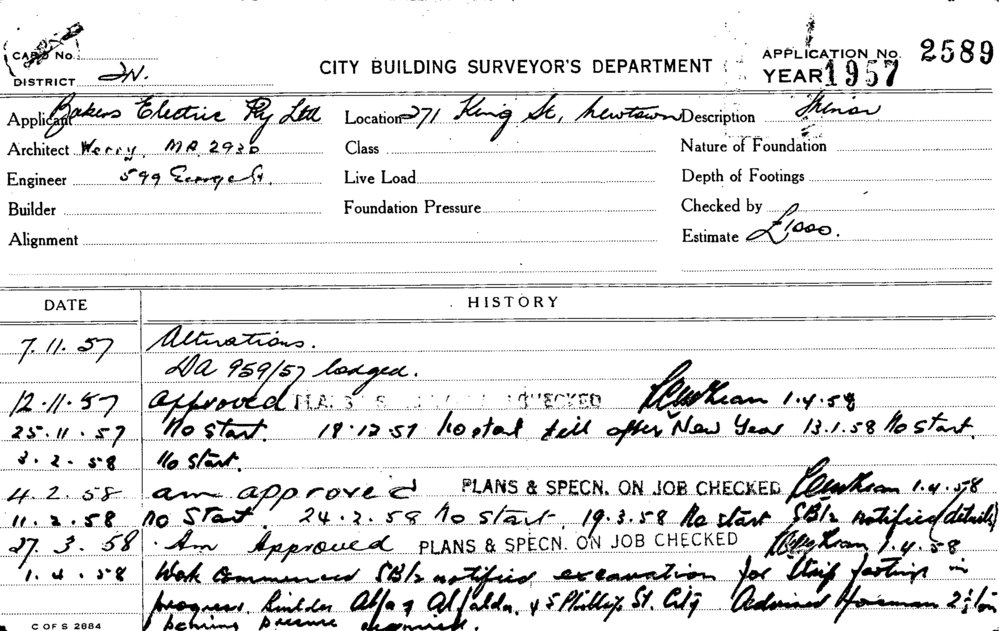 CARD No.
DISTRICT
CITY BUILDING SURVEYOR'S DEPARTMENT
APPLICATION No. 2589
YEAR 1957
Applicant Bakers Electric Pty Ltd Location 271 King St, Newtown Description
Architect MA 2930 Class Nature of Foundation
Engineer 599 George St. Live Load Depth of Footings
Builder Foundation Pressure Checked by
Alignment Estimate £1000.
DATE HISTORY
7.11.57 Alterations.
DA 959/57 lodged.
12.11.57 approved CHECKED 1.4.58
25.11.57 No start. 18.12.57 No start till after New Year 13.1.58 No start.
3.2.58 No start.
4.2.58 am approved PLANS & SPECN. ON JOB CHECKED 1.4.58
11.2.58 No start. 24.2.58 No start. 19.3.58 No start notified (details)
27.3.58 Am Approved PLANS & SPECN. ON JOB CHECKED 1.4.58.
1.4.58 Work commenced notified excavation for strip footings in
progress. Builder 45 Phillip St. City Advised foreman
bearing pressure required.
C OF S 2884